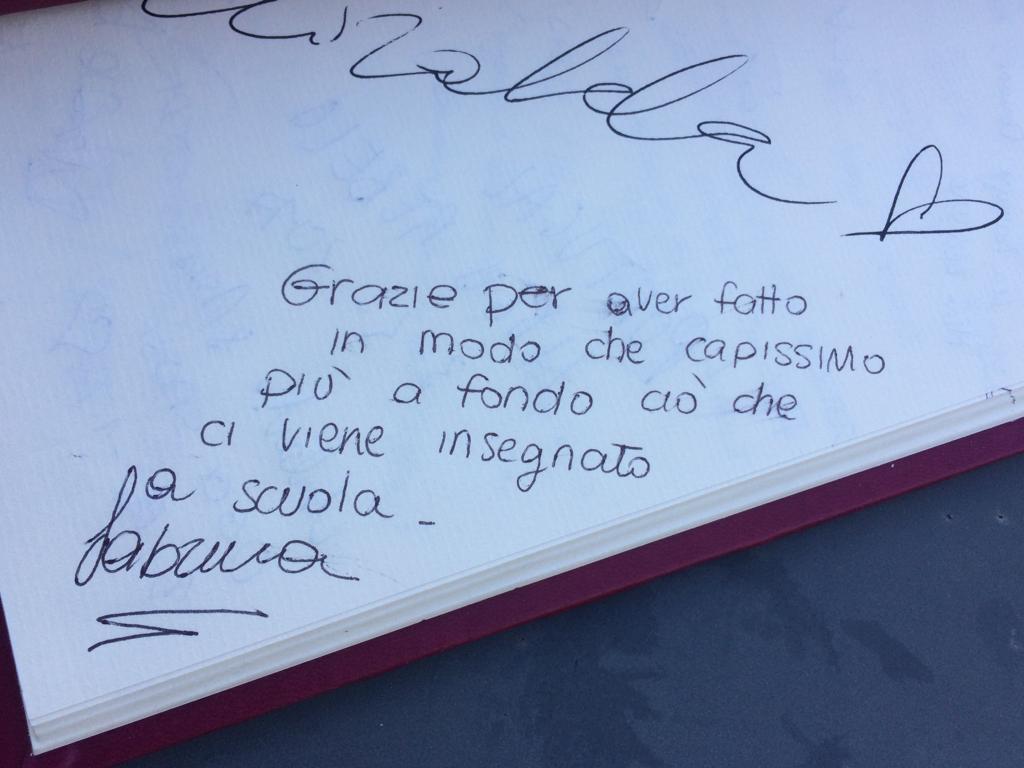 Grazie per aver fatto
in modo che capissimo
più a fondo ciò che
ci viene insegnato
a scuola
Sabrina